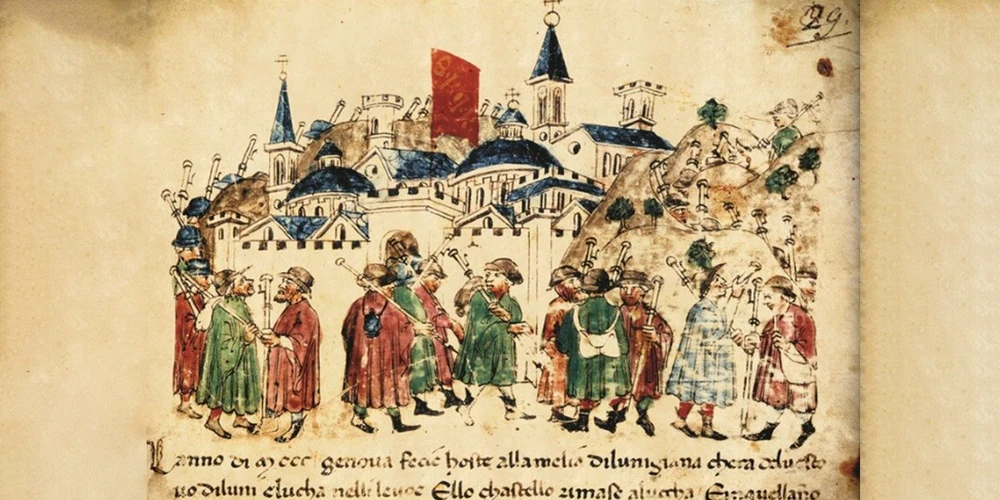 29.
Lanno di mccc genoua fecie hoste allamelia dilunigiana chera
uo diluni elucha nelli leuoe Ello chastello rimase alucha / Emquellano